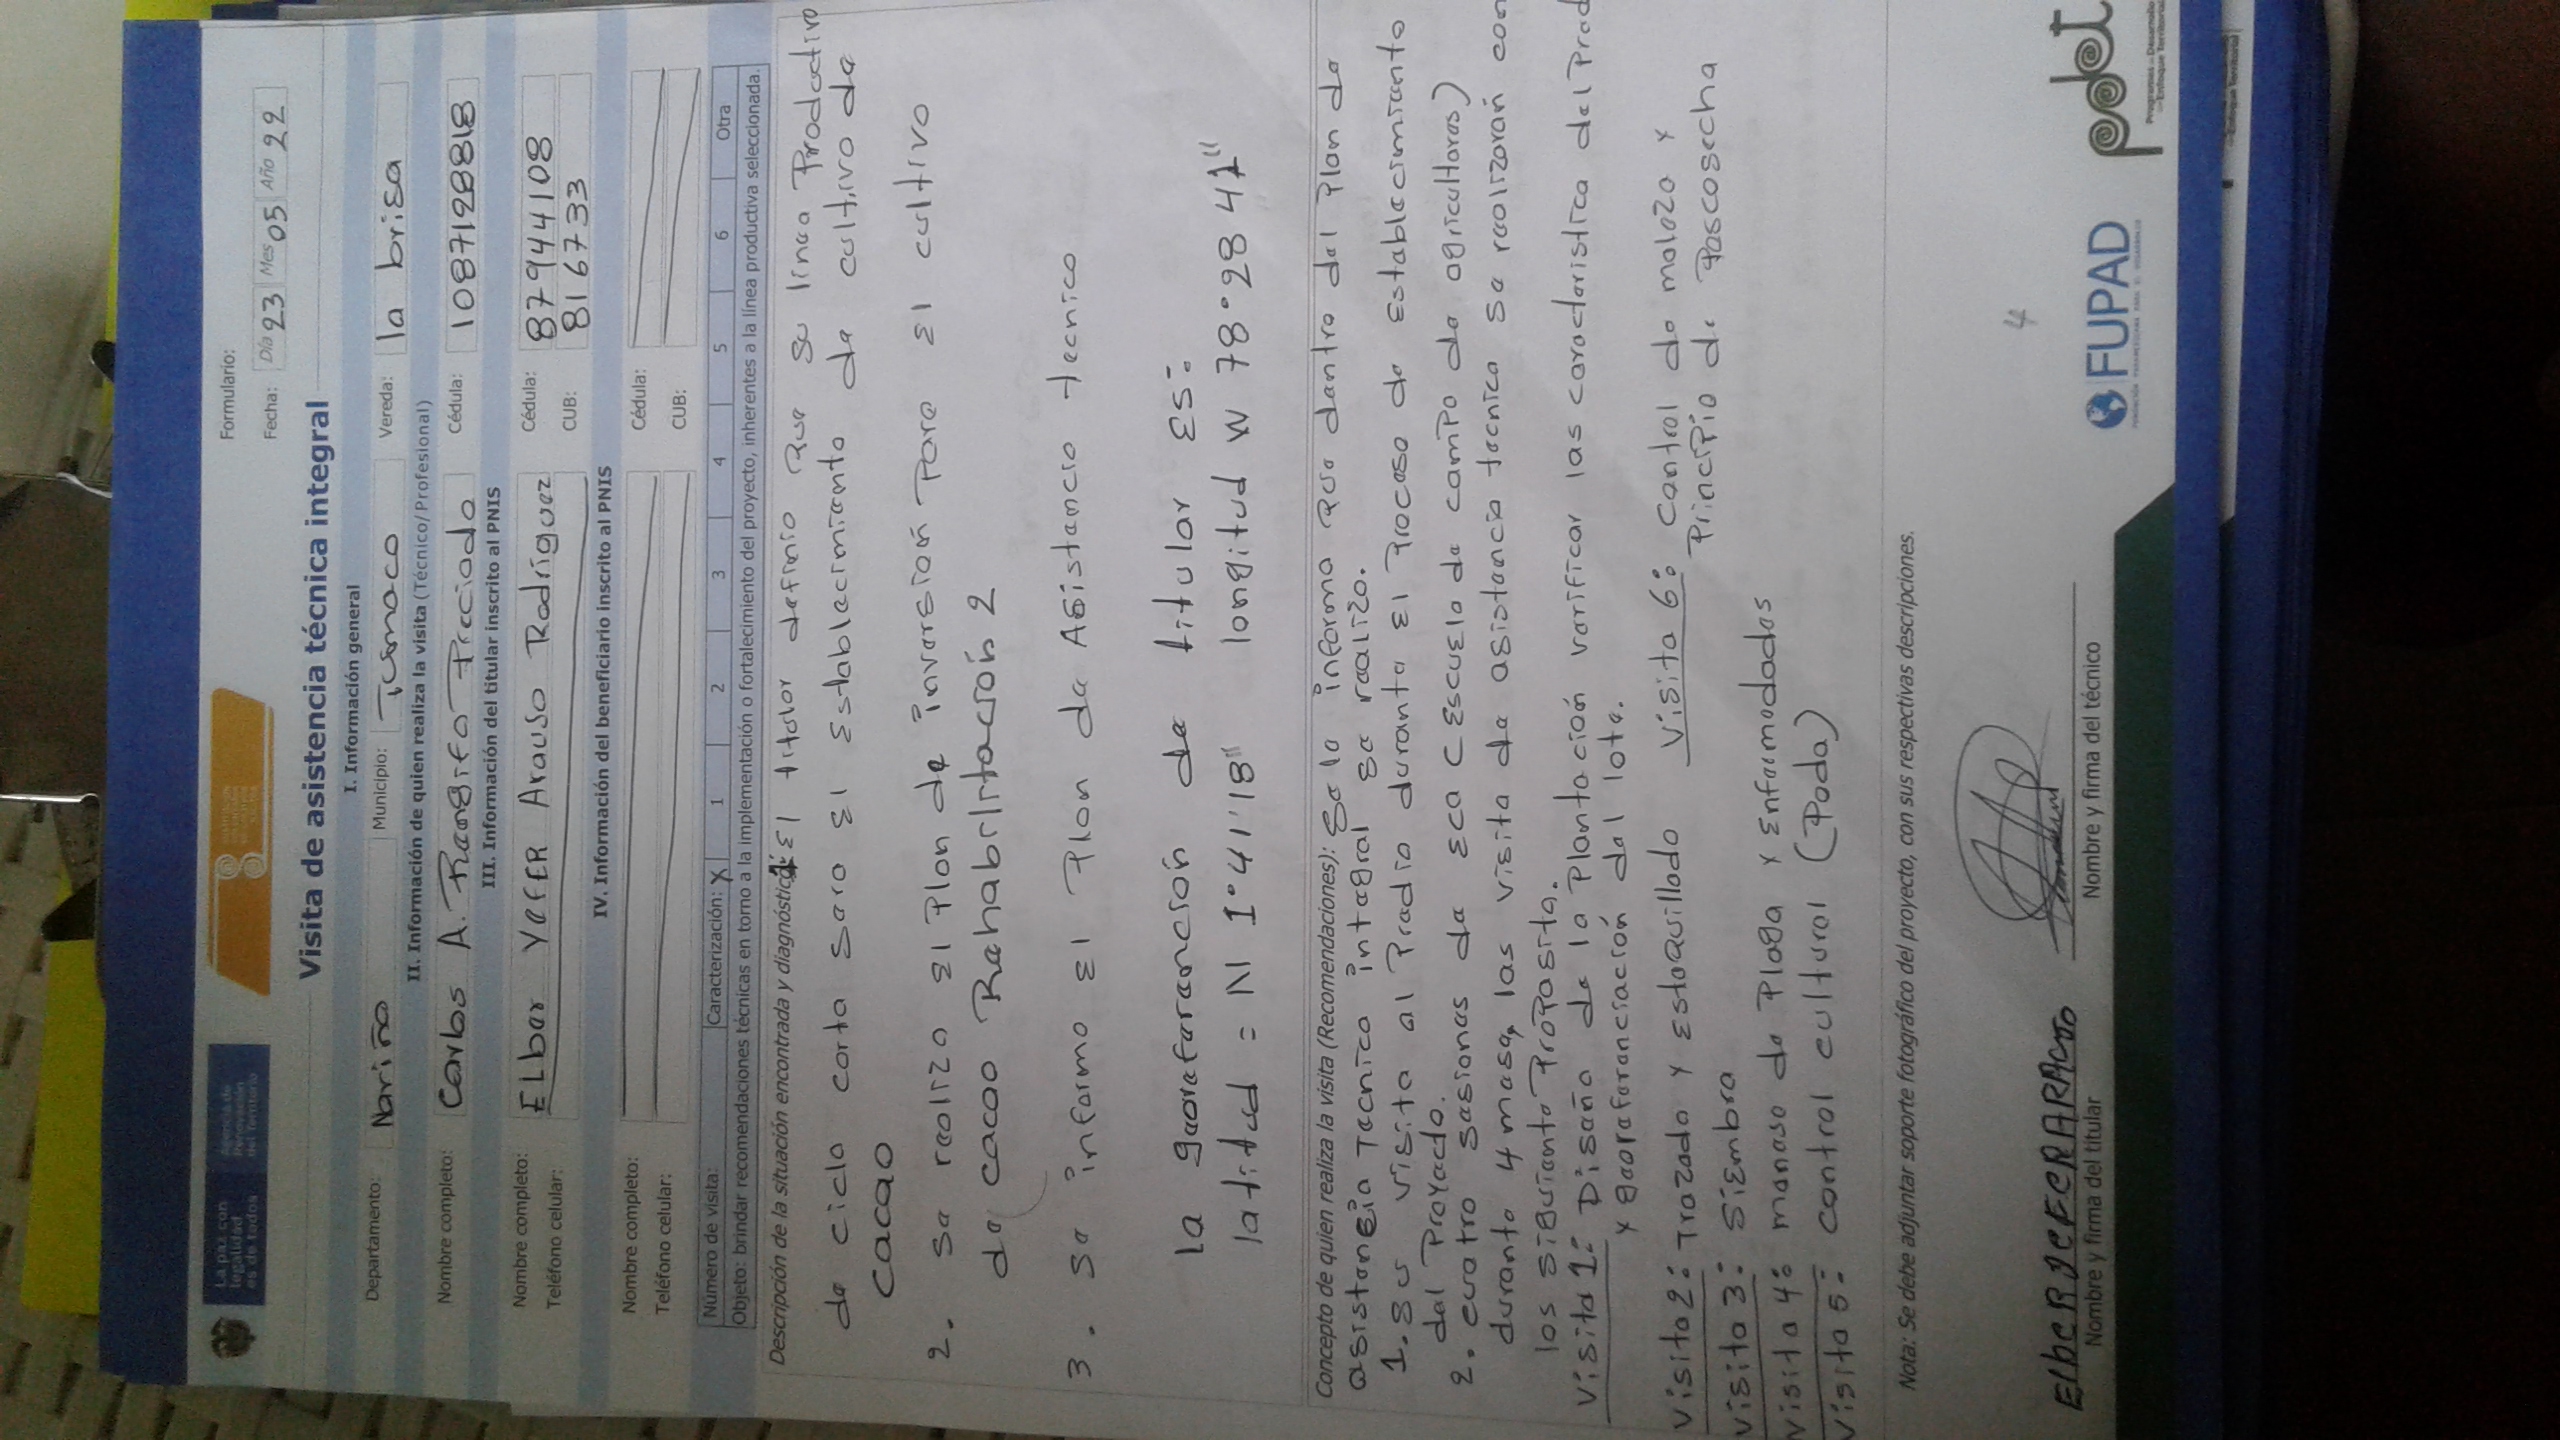 La paz con
legalidad
es de todos
Agencia de
Renovación
del Territorio
Formulario:
Fecha: Día 23 Mes 05 Año 22
Visita de asistencia técnica integral
I. Información general
Departamento: Nariño Municipio: Tumaco Vereda: la brisa
II. Información de quien realiza la visita (Técnico/Profesional)
Nombre completo: Carlos A. Rengifo Preciado Cédula: 1087128818
III. Información del titular inscrito al PNIS
Nombre completo: Elber YeFER Arauso Rodriguez Cédula: 87944108
Teléfono celular: CUB: 816733
IV. Información del beneficiario inscrito al PNIS
Nombre completo: Cédula:
Teléfono celular: CUB:
Número de visita: Caracterización: X 1 2 3 4 5 6 Otra
Objeto: brindar recomendaciones técnicas en torno a la implementación o fortalecimiento del proyecto, inherentes a la línea productiva seleccionada.
Descripción de la situación encontrada y diagnóstico: El titular definio que su linea Productivo
de ciclo corto sera el establecimiento de cultivo de
cacao
2. se realizo el Plan de inversión Para el cultivo
de cacao Rehabilitación 2
3. se informo el Plan de Asistencia tecnico
la georeferención de titular es:
latitud = N 1°41'18" longitud W 78°28 41"
Concepto de quien realiza la visita (Recomendaciones): Se le informa que dentro del Plan de
asistencia Tecnica integral se realizo.
1. su visita al Predio durante el Proceso de establecimiento
del Proyecto.
2. cuatro sesiones de eca (escuela de campo de agricultores)
durante 4 mese, las visita de asistencia tecnica se realizarán con
los siguiente Proposito.
Visita 1: Diseño de la Plantación verificar las caracteristica del Pred
y georeferenciación del lote.
Visita 2: Trazado y estaquillado Visita 6: Control de maleza y
Visita 3: Siembra Principio de Poscosecha
Visita 4: manejo de Plaga y enfermedades
Visita 5: control cultural (Poda)
Nota: Se debe adjuntar soporte fotográfico del proyecto, con sus respectivas descripciones.
4
Elber YeFER ARAuso
Nombre y firma del titular
Nombre y firma del técnico
FUPAD
FUNDACIÓN PANAMERICANA PARA EL DESARROLLO
pdet
Programas de Desarrollo
con Enfoque Territorial